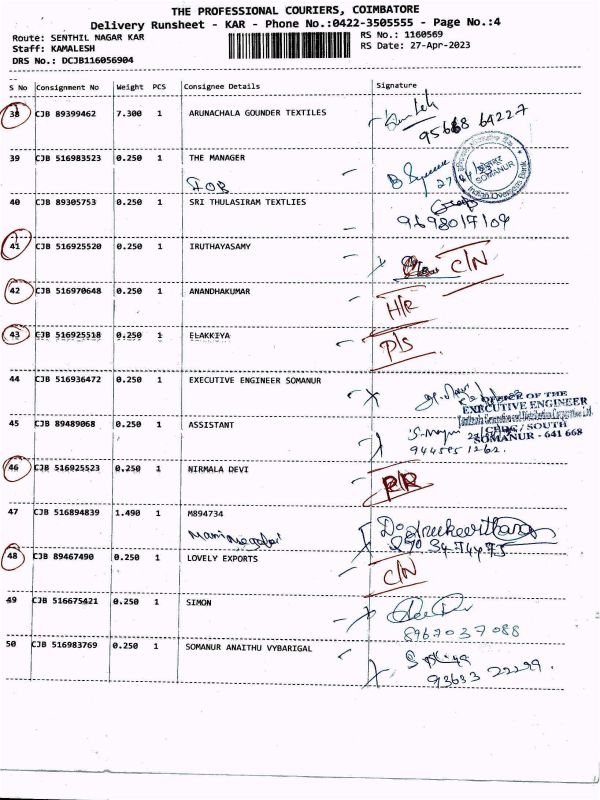 THE PROFESSIONAL COURIERS, COIMBATORE
Delivery Runsheet - KAR - Phone No.:0422-3505555 - Page No.:4
Route: SENTHIL NAGAR KAR RS No.: 1160569
Staff: KAMALESH RS Date: 27-Apr-2023
DRS No.: DCJB116056904
S No Consignment No Weight PCS Consignee Details Signature
38 CJB 89399462 7.300 1 ARUNACHALA GOUNDER TEXTILES
95668 64227
39 CJB 516983523 0.250 1 THE MANAGER
IOB
SOMANUR
Indian Overseas Bank
40 CJB 89305753 0.250 1 SRI THULASIRAM TEXTLIES
9698017104
41 CJB 516925520 0.250 1 IRUTHAYASAMY C/N
42 CJB 516970648 0.250 1 ANANDHAKUMAR
H/R
43 CJB 516925518 0.250 1 ELAKKIYA
P/S
44 CJB 516936472 0.250 1 EXECUTIVE ENGINEER SOMANUR
OFFICE OF THE
EXECUTIVE ENGINEER
45 CJB 89489068 0.250 1 ASSISTANT
/ SOUTH
SOMANUR - 641 668
46 CJB 516925523 0.250 1 NIRMALA DEVI
R/R
47 CJB 516894839 1.490 1 M894734
48 CJB 89467490 0.250 1 LOVELY EXPORTS
C/N
49 CJB 516675421 0.250 1 SIMON
8967037088
50 CJB 516983769 0.250 1 SOMANUR ANAITHU VYBARIGAL
93633 22299.